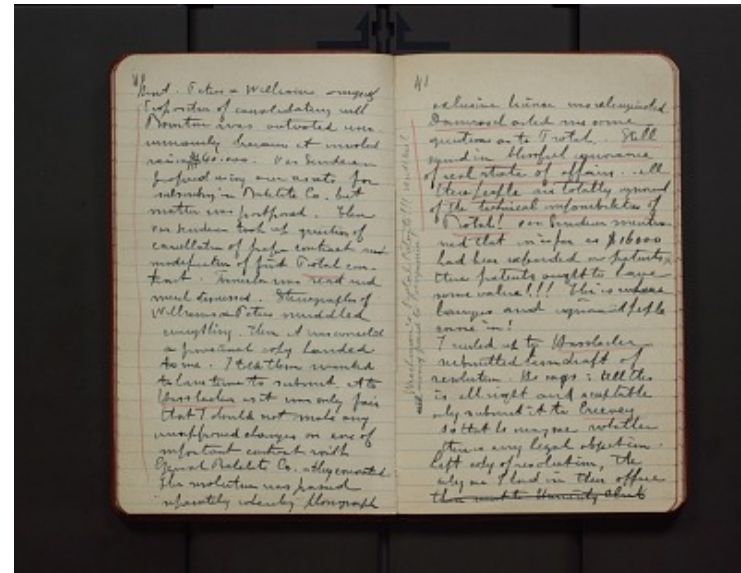 40
Peters & Williams urged
Proposition of consolidating with
Boonton was outvoted
because it involved
raising $60.000. Van Sinderen
proposed using our assets for
subscribing in Bakelite Co. but
matter was postponed. Then
Van Sinderen took up question of
cancellation of paper contract and
modification of first Protal con-
tract. Formula was read and
much discussed. Stenographer of
Williams & Peters muddled
everything. Then it was
a provisional copy handed
to me. I told them I wanted
to have time to submit it to
Hasslacher as it was only fair
that I should not make any
unapproved changes on eve of
important contract with
General Bakelite Co. & they consented
The resolution was passed
separately whereby paragraph
41
exclusive license was relinquished
Dammroel asked me some
questions as to Protal. Still
in blissful ignorance
of real state of affairs. All
these people are totally ignorant
of the technical impossibilities of
Protal! Van Sinderen mentio-
ned that in as far as $16000
had been expended on patents
these patents ought to have
some value!!! This is where
lawyers and ignorant people
come in!
I called up to Hasslacher
submitted him draft of
resolution. He says: all this
is all right and acceptable
only submit it to Creevey
so that he may see whether
there is any legal objection.
Left copy of resolution, the
only one I had in their office
then went to University Club